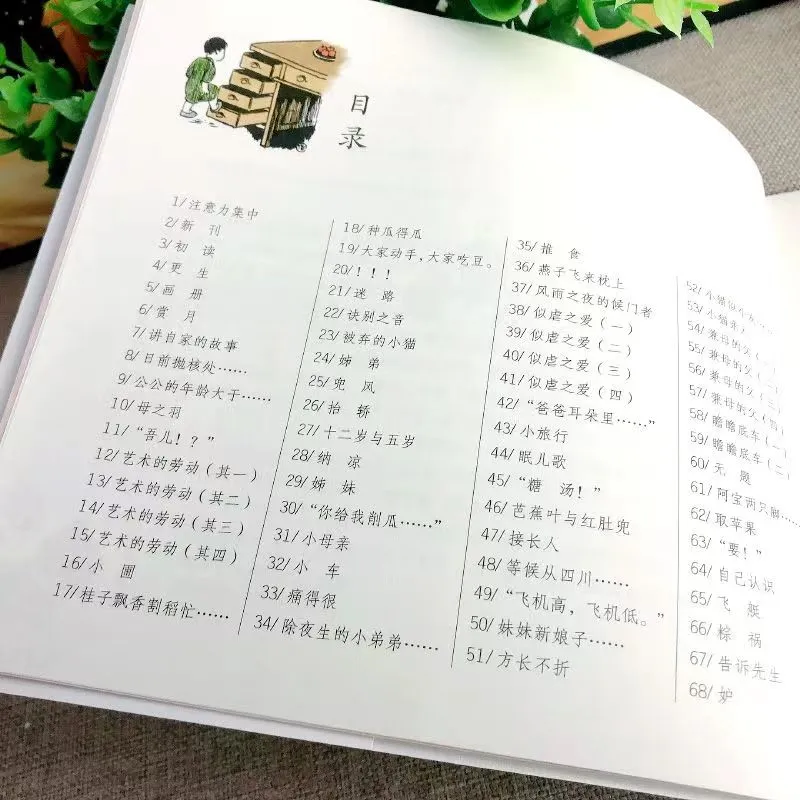 目录
1/注意力集中
2/新 刊
3/初 读
4/更 生
5/画 册
6/赏 月
7/讲自家的故事
8/日前抛核处……
9/公公的年龄大于……
10/母之羽
11/“吾儿!?”
12/艺术的劳动(其一)
13/艺术的劳动(其二)
14/艺术的劳动(其三)
15/艺术的劳动(其四)
16/小 圃
17/桂子飘香割稻忙……
18/种瓜得瓜
19/大家动手,大家吃豆。
20/!!!
21/迷 路
22/诀别之音
23/被弃的小猫
24/姊 弟
25/兜 风
26/抬 轿
27/十二岁与五岁
28/纳 凉
29/姊 妹
30/“你给我削瓜……”
31/小母亲
32/小 车
33/痛得很
34/除夜生的小弟弟……
35/推 食
36/燕子飞来枕上
37/风雨之夜的候门者
38/似虐之爱(一)
39/似虐之爱(二)
40/似虐之爱(三)
41/似虐之爱(四)
42/“爸爸耳朵里……”
43/小旅行
44/眠儿歌
45/“糖 汤!”
46/芭蕉叶与红肚兜
47/接长人
48/等候从四川……
49/“飞机高,飞机低。”
50/妹妹新娘子……
51/方长不折
52/小猫似小
53/小猫亲
54/兼母的父(一
55/兼母的父(二
56/兼母的父(三
57/兼母的父(四
58/瞻瞻底车(一)
59/瞻瞻底车(二
60/无 题
61/阿宝两只脚
62/取苹果
63/“要!”
64/自己认识
65/飞 艇
66/粽 祸
67/告诉先生
68/妒